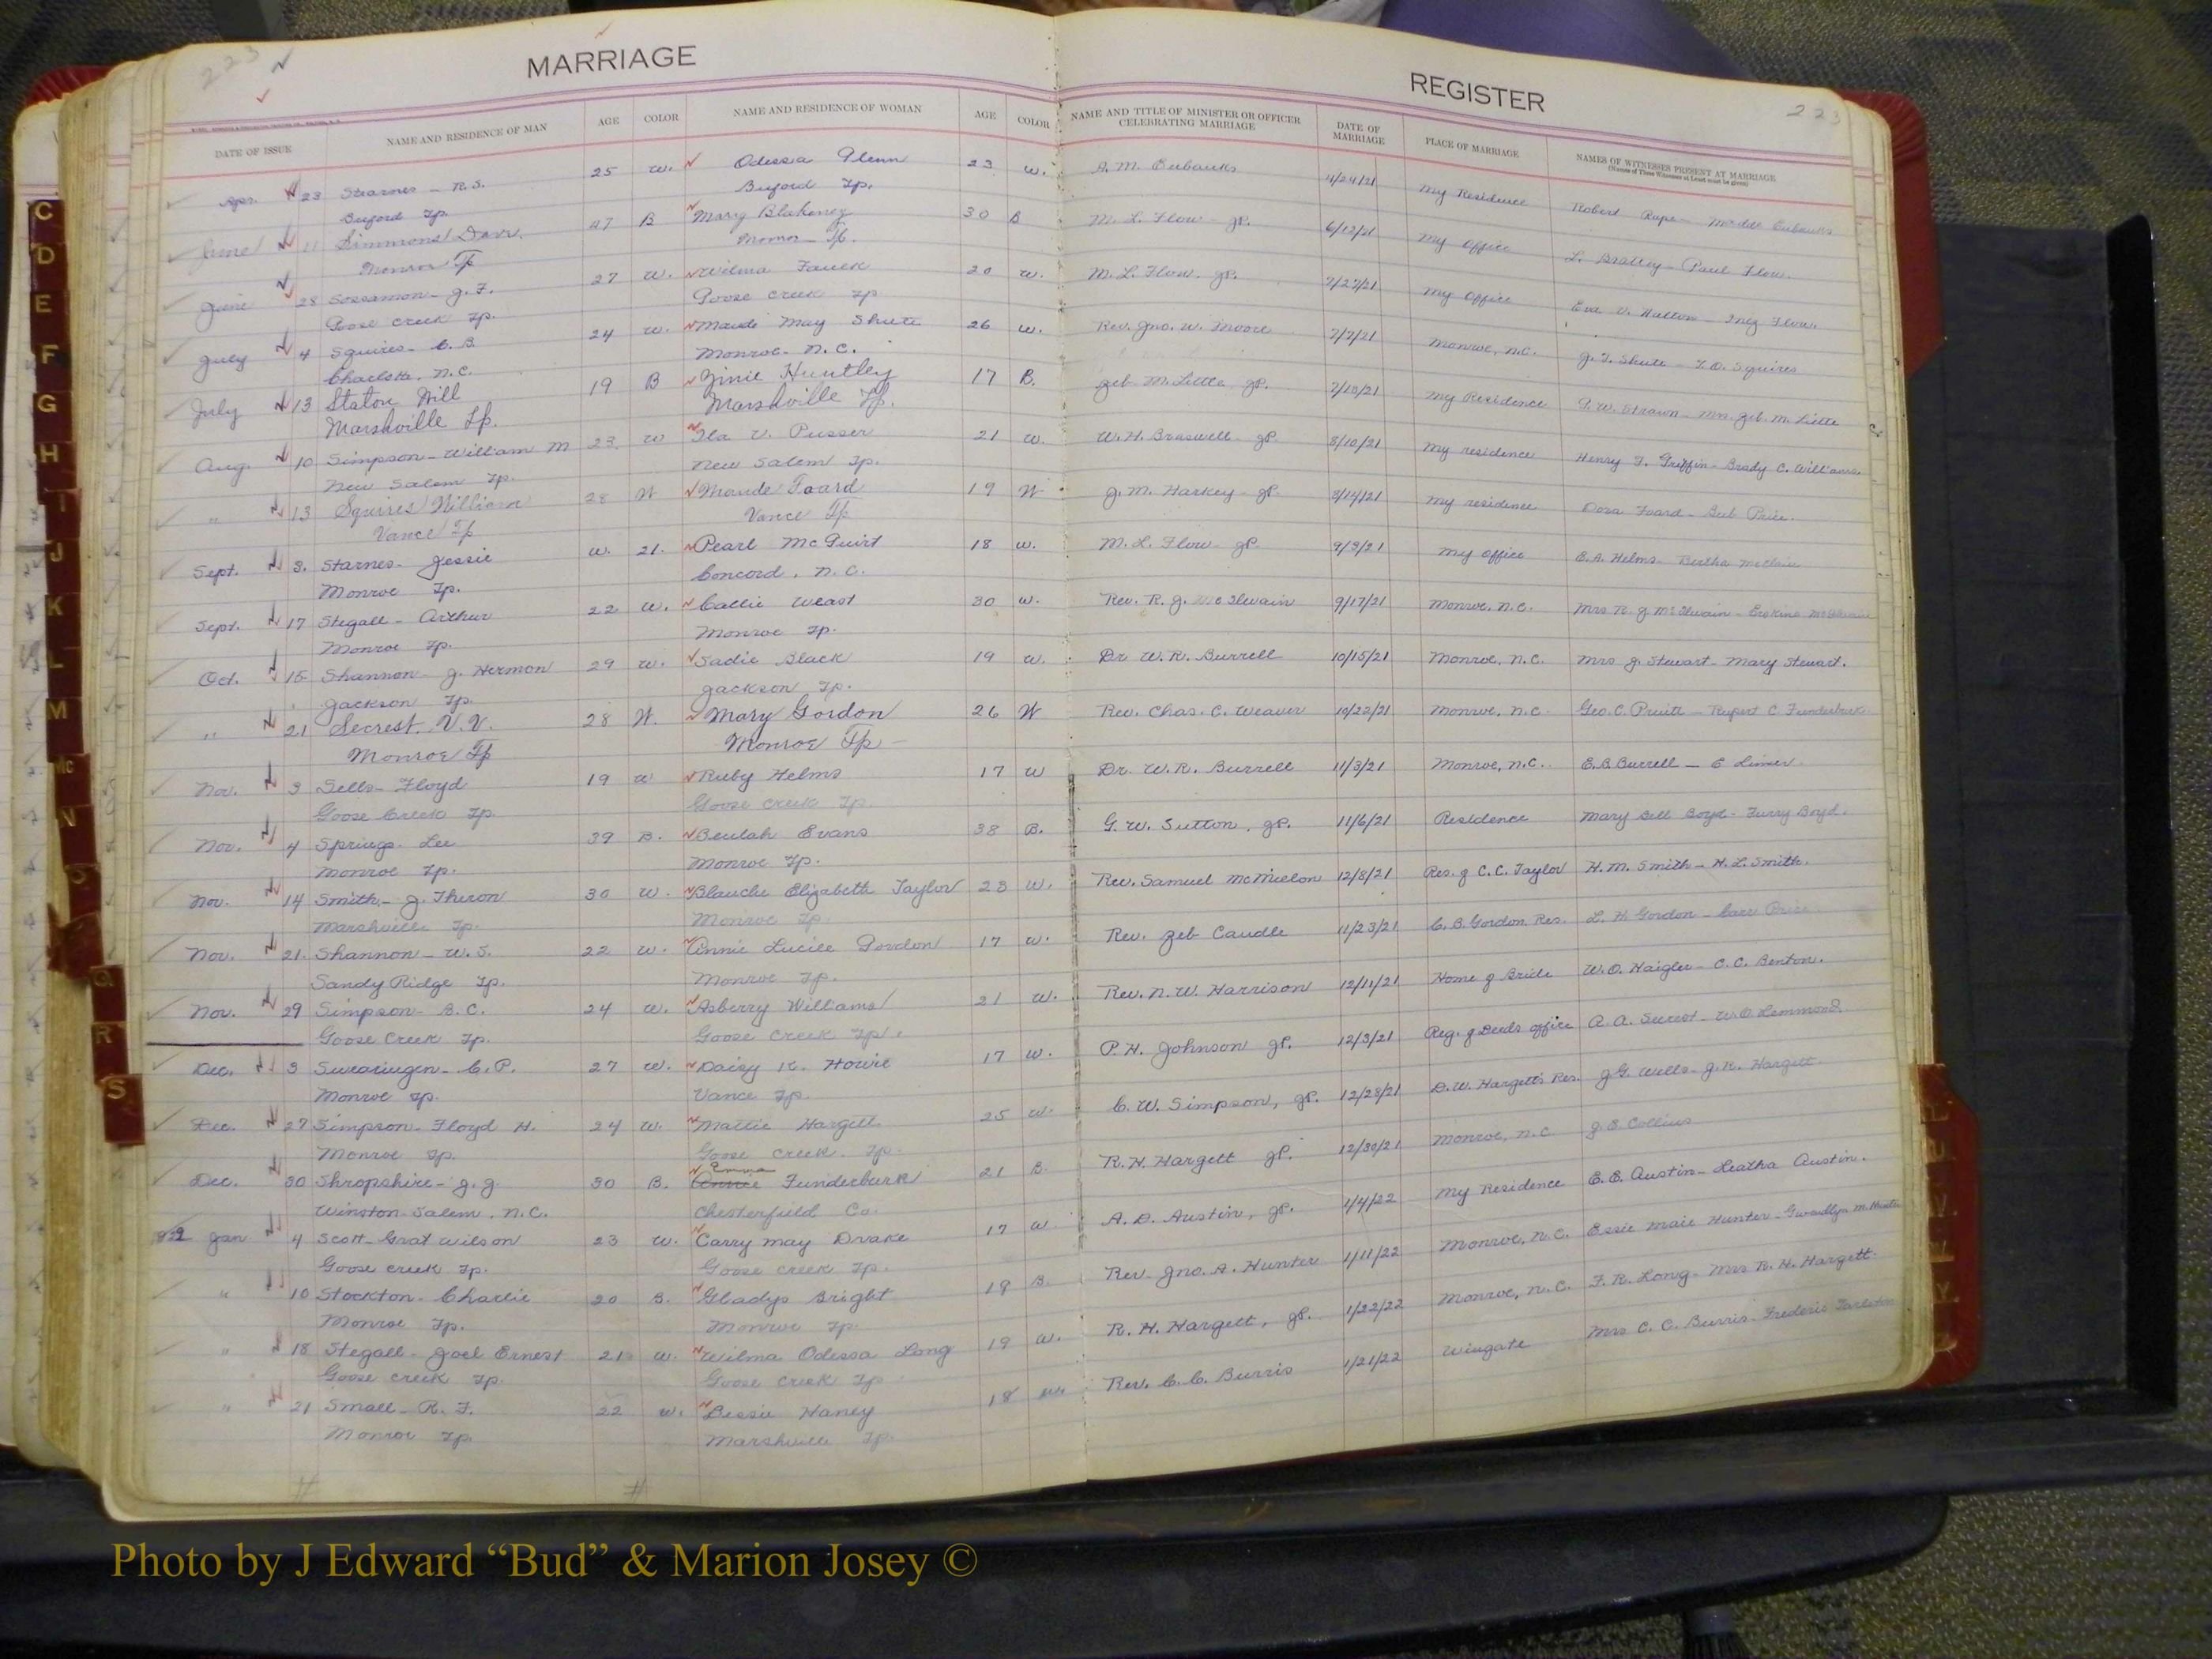 223
MARRIAGE REGISTER
223
DATE OF ISSUE NAME AND RESIDENCE OF MAN AGE COLOR NAME AND RESIDENCE OF WOMAN AGE COLOR NAME AND TITLE OF MINISTER OR OFFICER CELEBRATING MARRIAGE DATE OF MARRIAGE PLACE OF MARRIAGE NAMES OF WITNESSES PRESENT AT MARRIAGE
(Names of Three Witnesses at Least must be given)
Apr. 23 Starnes - R.S. 25 W. Odessa Glenn 23 W. A.M. Eubanks 4/24/21 My Residence Robert Rape - Eubanks
Buford Tp. Buford Tp.
June 11 Simmons 47 B Mary Blakeney 30 B M. L. Flow - JP. 6/12/21 My Office Paul Flow.
Monroe Tp Monroe Tp.
June 28 Sossamon - J. F. 27 W. Wilma Faulk 20 W. M. L. Flow. JP. My Office Eva V. Hatton - Inez Flow.
Goose Creek Tp. Goose Creek Tp
July 4 Squires - C. B. 24 W. Maude May Shute 26 W. Rev. Jno. W. Moore 7/7/21 Monroe, N.C. J. T. Shute - Squires
Charlotte, N.C. Monroe - N.C.
July 13 Staton Will 19 B Zinie Huntley 17 B. Zeb. M. Little JP. My Residence Mrs. Zeb. M. Little
Marshville Tp. Marshville Tp.
Aug. 10 Simpson - William M 23 W Ila V. Pusser 21 W. W. H. Braswell JP. 8/10/21 My residence Henry F. Griffin - Brady C. Williams.
New Salem Tp. New Salem Tp.
" 13 Squires William 28 W Maude Foard 19 W J. M. Harkey - JP. 8/14/21 My residence Dora Foard - Price.
Vance Tp Vance Tp
Sept. 3. Starnes - Jessie W. 21. Pearl McGuirt 18 W. M. L. Flow - JP. 9/3/21 My office E. A. Helms - Bertha
Monroe Tp. Concord, N.C.
Sept. 17 Stegall - Arthur 22 W. Callie 30 W. Rev. R. J. McIlwain 9/17/21 Monroe, N.C. Mrs R. J. McIlwain - Erskine
Monroe Tp. Monroe Tp.
Oct. 15 Shannon - J. Hermon 29 W. Sadie Black 19 W. Dr W. R. Burrell 10/15/21 Monroe, N.C. Mrs J. Stewart - Mary Stewart.
Jackson Tp. Jackson Tp.
" 21 Secrest, V. V. 28 W. Mary Gordon 26 W Rev. Chas. C. Weaver 10/22/21 Monroe, N.C Geo. C. Pruitt - Rupert C. Funderburk
Monroe Tp Monroe Tp
Nov. 3 Sells - Floyd 19 W Ruby Helms 17 W Dr. W. R. Burrell 11/3/21 Monroe, N.C. E. B. Burrell - E
Goose Creek Tp. Goose Creek Tp.
Nov. 4 Springs - Lee 39 B. Beulah Evans 38 B. G. W. Sutton, JP. 11/6/21 Residence Mary Bell Boyd - Furry Boyd.
Monroe Tp. Monroe Tp.
Nov. 14 Smith - J. Theron 30 W. Blanche Elizabeth Taylor 23 W. Rev. Samuel 12/8/21 Res. of C. C. Taylor H. M. Smith - H. L. Smith.
Marshville Tp. Monroe Tp.
Nov. 21. Shannon - W. S. 22 W. Annie Lucile Gordon 17 W. Rev. Zeb Caudle 11/23/21 C. B. Gordon Res. L. H. Gordon - Price
Sandy Ridge Tp. Monroe Tp.
Nov. 29 Simpson - B. C. 24 W. Asberry Williams 21 W. Rev. N. W. Harrison 12/11/21 Home of Bride W. O. Haigler - C. C. Benton.
Goose Creek Tp. Goose Creek Tp.
Dec. 3 Swearingen - C. P. 27 W. Daisy K. Howie 17 W. P. H. Johnson JP. 12/3/21 Reg. of Deeds office A. A. Secrest - W. O. Lemmond
Monroe Tp. Vance Tp.
Dec. 27 Simpson - Floyd H. 24 W. Mattie Hargett 25 W. C. W. Simpson, JP. 12/28/21 D. W. Hargett's Res. J G. Wells - J. K. Hargett.
Monroe Tp. Goose Creek. Tp.
Emma
Dec. 30 Shropshire - J. J. 30 B. Annie Funderburk 21 B. R. H. Hargett JP. 12/30/21 Monroe, N.C J. E. Collins
Winston-Salem, N.C. Chesterfield Co.
Jan 4 Scott - Grat Wilson 23 W. Carry May Drake 17 W A. D. Austin, JP. 1/4/22 My Residence E. E. Austin - Leatha Austin.
Goose Creek Tp. Goose Creek Tp.
" 10 Stockton - Charlie 20 B. Gladys Bright 19 B. Rev - Jno. A. Hunter 1/11/22 Monroe, N.C. Essie Maie Hunter - Gwendlyn M. Hunter
Monroe Tp. Monroe Tp.
" 18 Stegall - Joel Ernest 21 W. Wilma Odessa Long 19 W. R. H. Hargett, JP. 1/22/22 Monroe, N.C. F. R. Long - Mrs R. H. Hargett.
Goose Creek Tp. Goose Creek Tp
" 21 Small - R. F. 22 W. Bessie Haney 18 W. Rev. C. C. Burris 1/21/22 Wingate Mrs C. C. Burris - Frederic
Monroe Tp Marshville Tp.
C
D
E
F
G
H
I
J
K
L
M
Mc
N
O
Q
R
S
Photo by J Edward “Bud” & Marion Josey ©